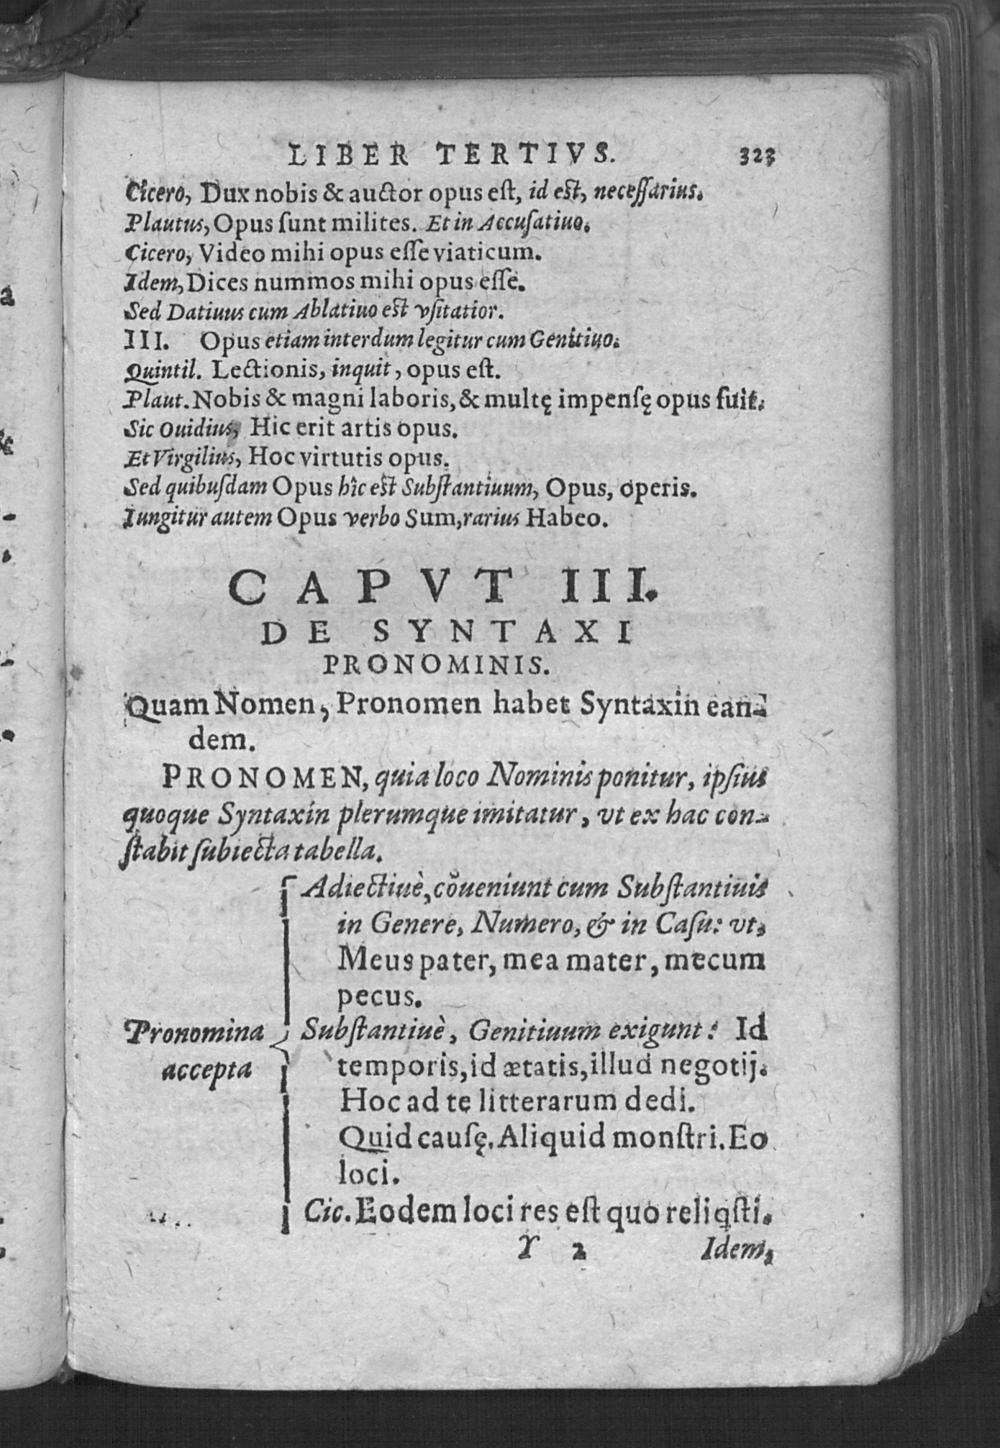 LIBER TERTIVS. 323
Cicero, Dux nobis & auctor opus eſt, id eſt, neceſſarius.
Plautus, Opus ſunt milites. Et in Accuſatiuo.
Cicero, Video mihi opus eſſe viaticum.
Idem, Dices nummos mihi opus eſſe.
Sed Datiuus cum Ablatiuo eſt vſitatior.
III. Opus etiam interdum legitur cum Genitiuo.
Quintil. Lectionis, inquit, opus eſt.
Plaut. Nobis & magni laboris, & multę impenſę opus fuit.
Sic Ouidius, Hic erit artis opus.
Et Virgilius, Hoc virtutis opus.
Sed quibuſdam Opus hîc eſt Subſtantiuum, Opus, operis.
Iungitur autem Opus verbo Sum, rarius Habeo.
CAPVT III.
DE SYNTAXI
PRONOMINIS.
Quam Nomen, Pronomen habet Syntaxin ean-
dem.
PRONOMEN, quia loco Nominis ponitur, ipſius
quoque Syntaxin plerumque imitatur, vt ex hac con-
ſtabit ſubiecta tabella.
Adiectiuè, cõueniunt cum Subſtantiuis
in Genere, Numero, & in Caſu: vt,
Meus pater, mea mater, mecum
pecus.
Pronomina Subſtantiuè, Genitiuum exigunt: Id
accepta temporis, id ætatis, illud negotij.
Hoc ad te litterarum dedi.
Quid cauſę. Aliquid monſtri. Eo
loci.
Cic. Eodem loci res eſt quo reliqſti.
Y 2 Idem,